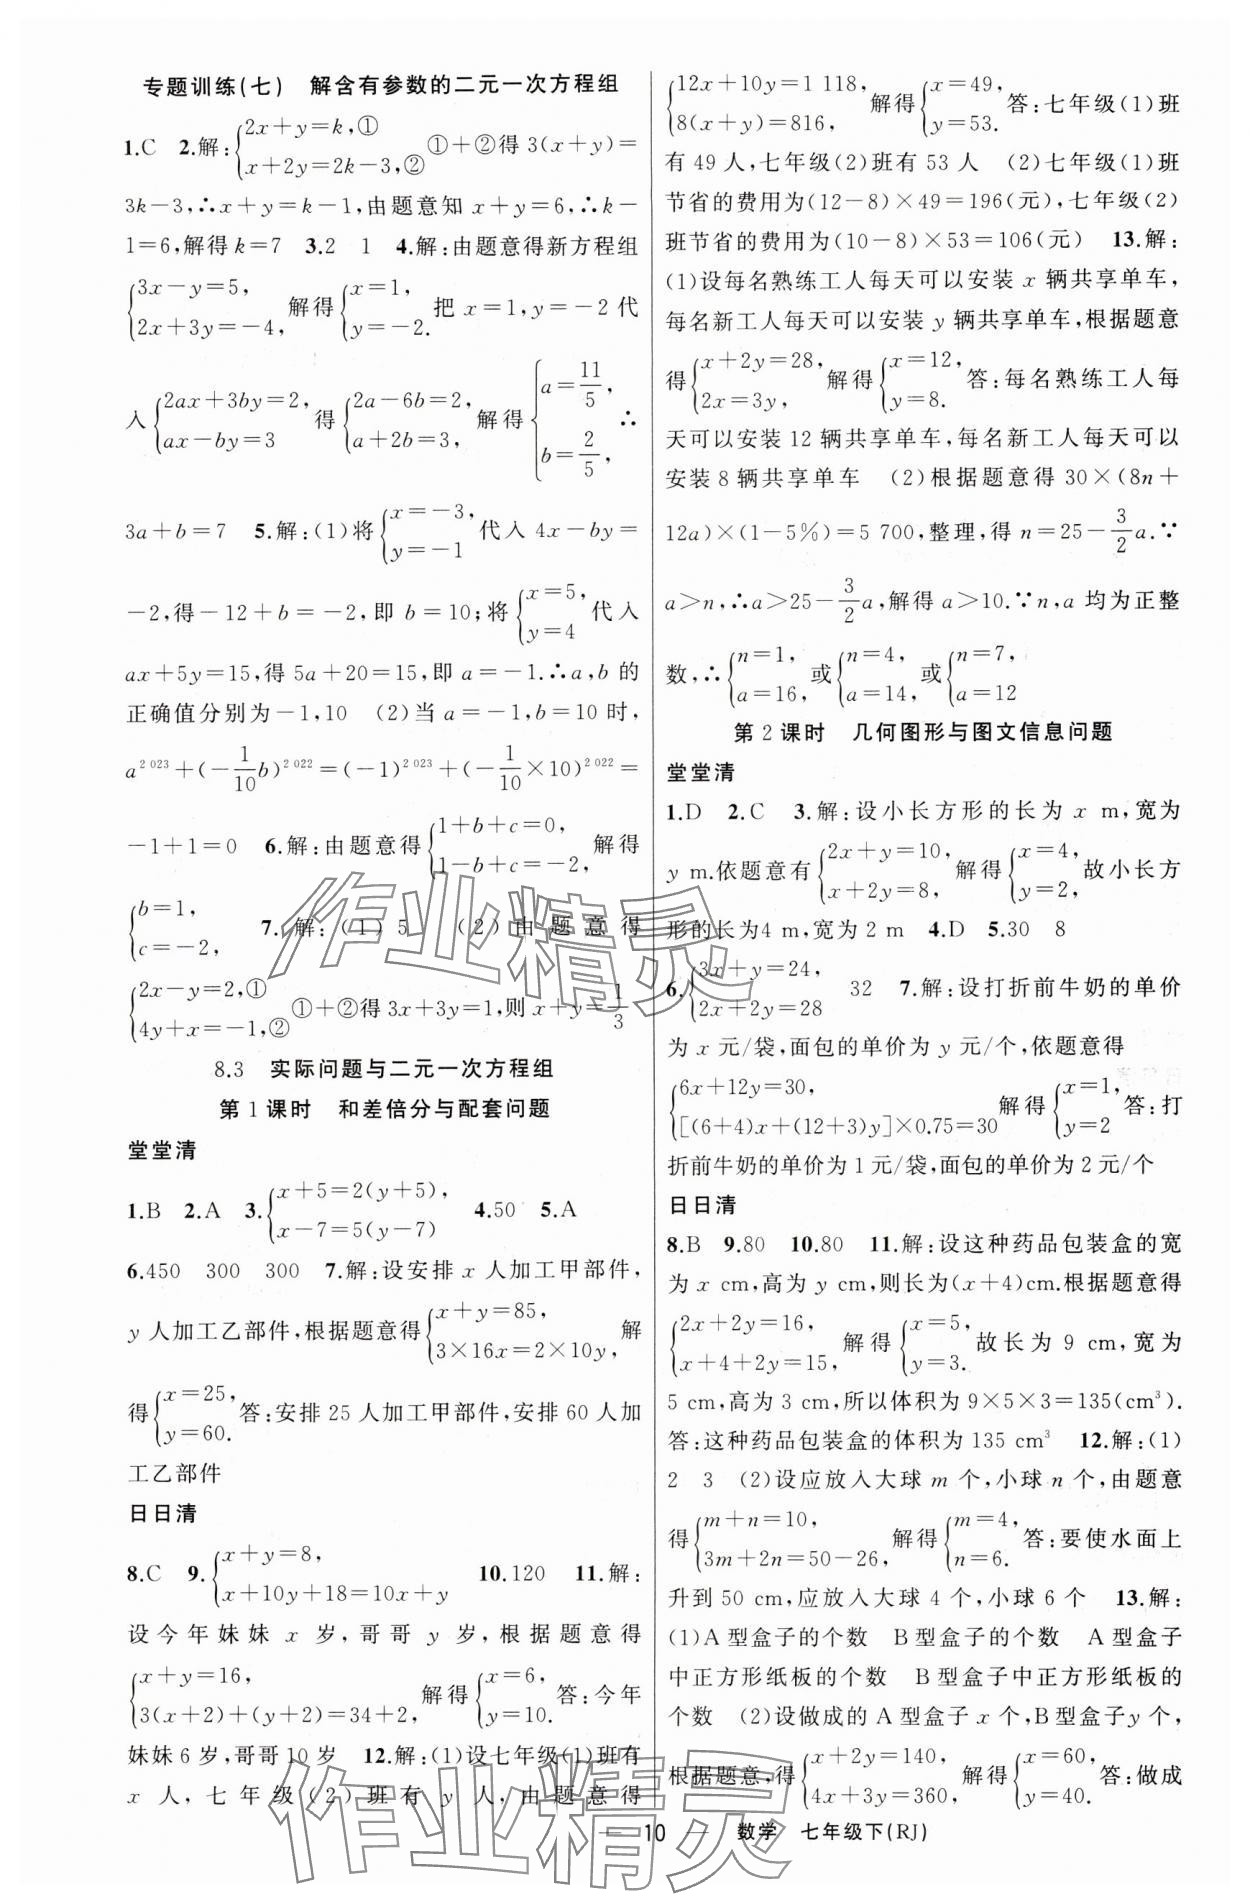 专题训练(七)　解含有参数的二元一次方程组
1.C　2.解:{2x+y=k,① x+2y=2k-3,② ①+②得 3(x+y)=
3k-3,∴x+y=k-1,由题意知 x+y=6,∴k-
1=6,解得 k=7　3.2　1　4.解:由题意得新方程组
{3x-y=5, 2x+3y=-4, 解得{x=1, y=-2. 把 x=1,y=-2 代
入{2ax+3by=2, ax-by=3 得{2a-6b=2, a+2b=3, 解得{a=11/5, b=2/5, ∴
3a+b=7　5.解:(1)将{x=-3, y=-1 代入 4x-by=
-2,得-12+b=-2,即 b=10;将{x=5, y=4 代入
ax+5y=15,得 5a+20=15,即 a=-1.∴a,b 的
正确值分别为-1,10　(2)当 a=-1,b=10 时,
a^2 023+(-1/10 b)^2 022=(-1)^2 023+(-1/10×10)^2 022=
-1+1=0　6.解:由题意得{1+b+c=0, 1-b+c=-2, 解得
{b=1, c=-2,　7.解:(1)5　(2)由题意得
{2x-y=2,① 4y+x=-1,② ①+②得 3x+3y=1,则 x+y=1/3
8.3　实际问题与二元一次方程组
第1课时　和差倍分与配套问题
堂堂清
1.B　2.A　3.{x+5=2(y+5), x-7=5(y-7)　4.50　5.A
6.450　300　300　7.解:设安排 x 人加工甲部件,
y 人加工乙部件,根据题意得{x+y=85, 3×16x=2×10y, 解
得{x=25, y=60. 答:安排 25 人加工甲部件,安排 60 人加
工乙部件
日日清
8.C　9.{x+y=8, x+10y+18=10x+y　10.120　11.解:
设今年妹妹 x 岁,哥哥 y 岁,根据题意得
{x+y=16, 3(x+2)+(y+2)=34+2, 解得{x=6, y=10. 答:今年
妹妹 6 岁,哥哥 10 岁　12.解:(1)设七年级(1)班有
x 人,七年级(2)班有 y 人,由题意得
{12x+10y=1 118, 8(x+y)=816, 解得{x=49, y=53. 答:七年级(1)班
有 49 人,七年级(2)班有 53 人　(2)七年级(1)班
节省的费用为(12-8)×49=196(元),七年级(2)
班节省的费用为(10-8)×53=106(元)　13.解:
(1)设每名熟练工人每天可以安装 x 辆共享单车,
每名新工人每天可以安装 y 辆共享单车,根据题意
得{x+2y=28, 2x=3y, 解得{x=12, y=8. 答:每名熟练工人每
天可以安装 12 辆共享单车,每名新工人每天可以
安装 8 辆共享单车　(2)根据题意得 30×(8n+
12a)×(1-5%)=5 700,整理,得 n=25-3/2 a.∵
a>n,∴a>25-3/2 a,解得 a>10.∵n,a 均为正整
数,∴{n=1, a=16, 或{n=4, a=14, 或{n=7, a=12
第2课时　几何图形与图文信息问题
堂堂清
1.D　2.C　3.解:设小长方形的长为 x m,宽为
y m.依题意有{2x+y=10, x+2y=8, 解得{x=4, y=2, 故小长方
形的长为4 m,宽为 2 m　4.D　5.30　8
6.{3x+y=24, 2x+2y=28　32　7.解:设打折前牛奶的单价
为 x 元/袋,面包的单价为 y 元/个,依题意得
{6x+12y=30, [(6+4)x+(12+3)y]×0.75=30 解得{x=1, y=2 答:打
折前牛奶的单价为 1 元/袋,面包的单价为 2 元/个
日日清
8.B　9.80　10.80　11.解:设这种药品包装盒的宽
为 x cm,高为 y cm,则长为(x+4)cm.根据题意得
{2x+2y=16, x+4+2y=15, 解得{x=5, y=3. 故长为 9 cm,宽为
5 cm,高为 3 cm,所以体积为 9×5×3=135(cm³).
答:这种药品包装盒的体积为 135 cm³　12.解:(1)
2　3　(2)设应放入大球 m 个,小球 n 个,由题意
得{m+n=10, 3m+2n=50-26, 解得{m=4, n=6. 答:要使水面上
升到 50 cm,应放入大球 4 个,小球 6 个　13.解:
(1)A 型盒子的个数　B 型盒子的个数　A 型盒子
中正方形纸板的个数　B 型盒子中正方形纸板的
个数　(2)设做成的 A 型盒子 x 个,B型盒子 y 个,
根据题意,得{x+2y=140, 4x+3y=360, 解得{x=60, y=40. 答:做成
— 10 —　数学　七年级下(RJ)
作业精灵
作业精灵